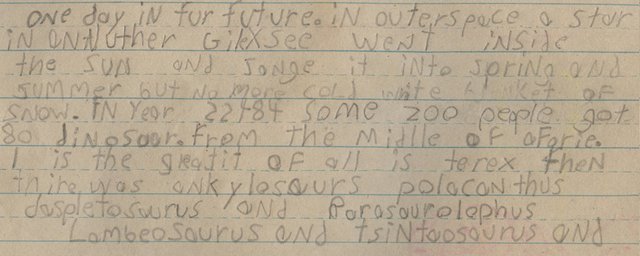 one day in fur future. in outerspace a star
in anthuther Gilexsee went inside
the sun and songe it into spring and
summer but no more cold wite blanket of
snow. in year 22484 some 200 peaple got
80 dinosaur. from the midlle of aforie.
1 is the greatit of all is terex then
thire was ankylosaurs polacanthus
daspletosuurus and Parasaurolophus
Lambeosaurus and tsintaosaurus and